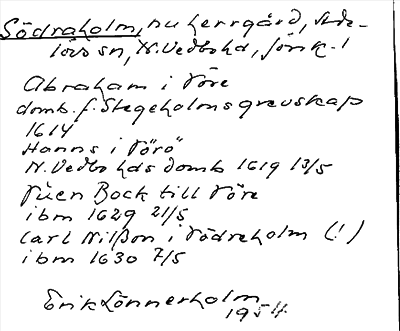 Södraholm, nu herrgård, Ande-
lövs sn, N. Vedbo hd, Jönk. l
Abraham i Töre
domb. f. Stegeholms grevskap
1614
Hanns i Törö
N. Vedbo hds domb 1619 13/5
Tüen Bock till Töre
ibm 1629 21/5
Carl Nilßon i Tödreholm (!)
ibm 1630 7/5
Erik Lönnerholm
1954.